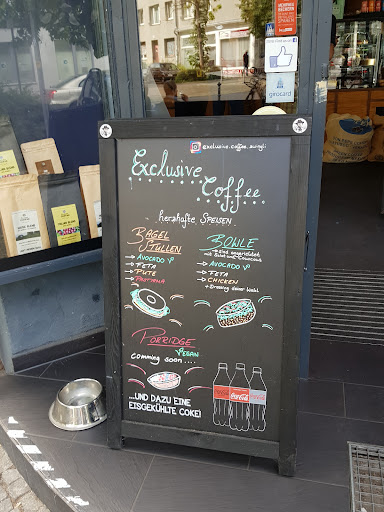 girocard
exclusive.coffee_
Exclusive
Coffee
herzhafte Speisen
BAGEL
STULLEN
→ AVOCADO
→ FETA
→ PUTE
→ PASTRAMI
BOWLE
→ AVOCADO
→ FETA
→ CHICKEN
+ Dressing deiner Wahl
PORRIDGE
VEGAN
Comming soon....
Coca-Cola
...UND DAZU EINE
EISGEKÜHLTE COKE!